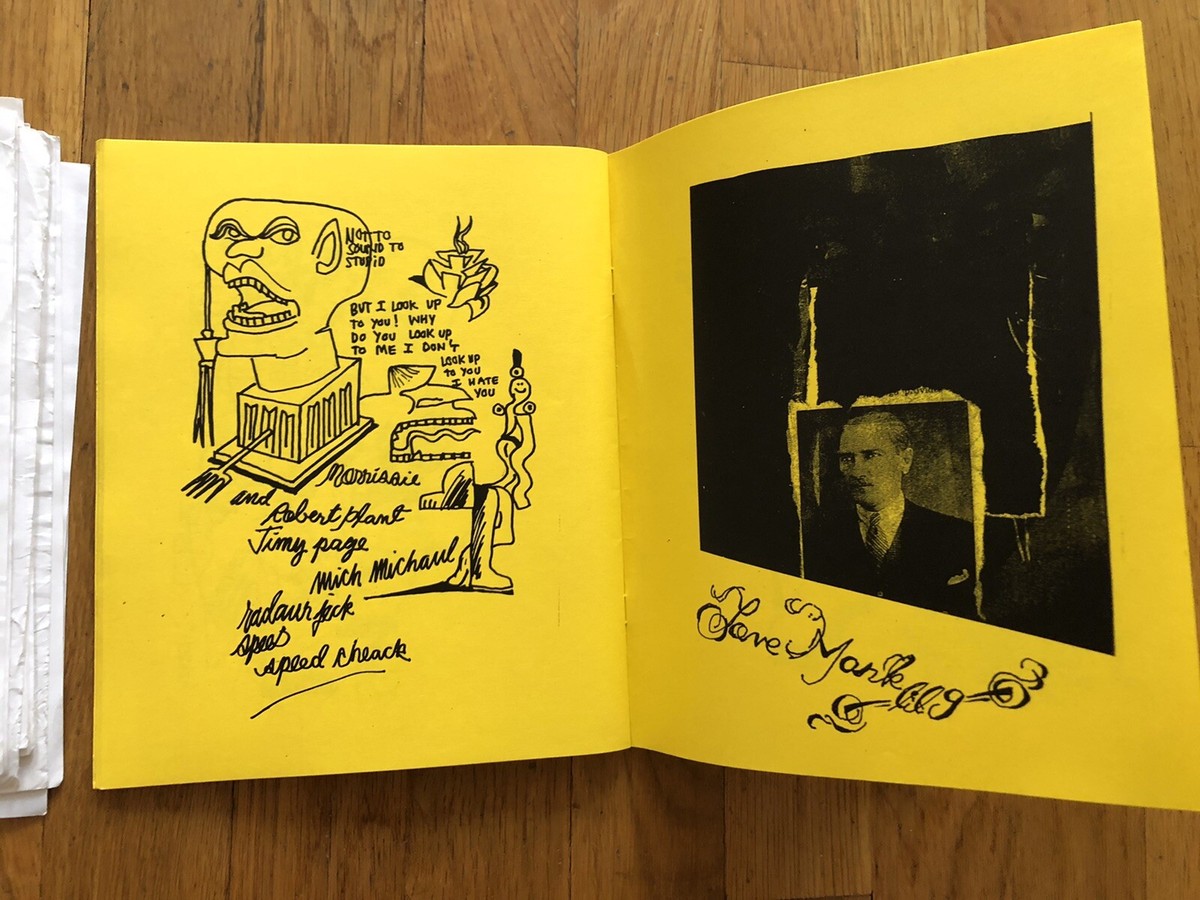 NOT TO
SOUND TO
STUPID
BUT I LOOK UP
TO YOU! WHY
DO YOU LOOK UP
TO ME I DON'T
LOOK UP
TO YOU
I HATE
YOU
Morrissie
and
Robert plant
Jimy page
Mich Michaul
jack
speed cheack